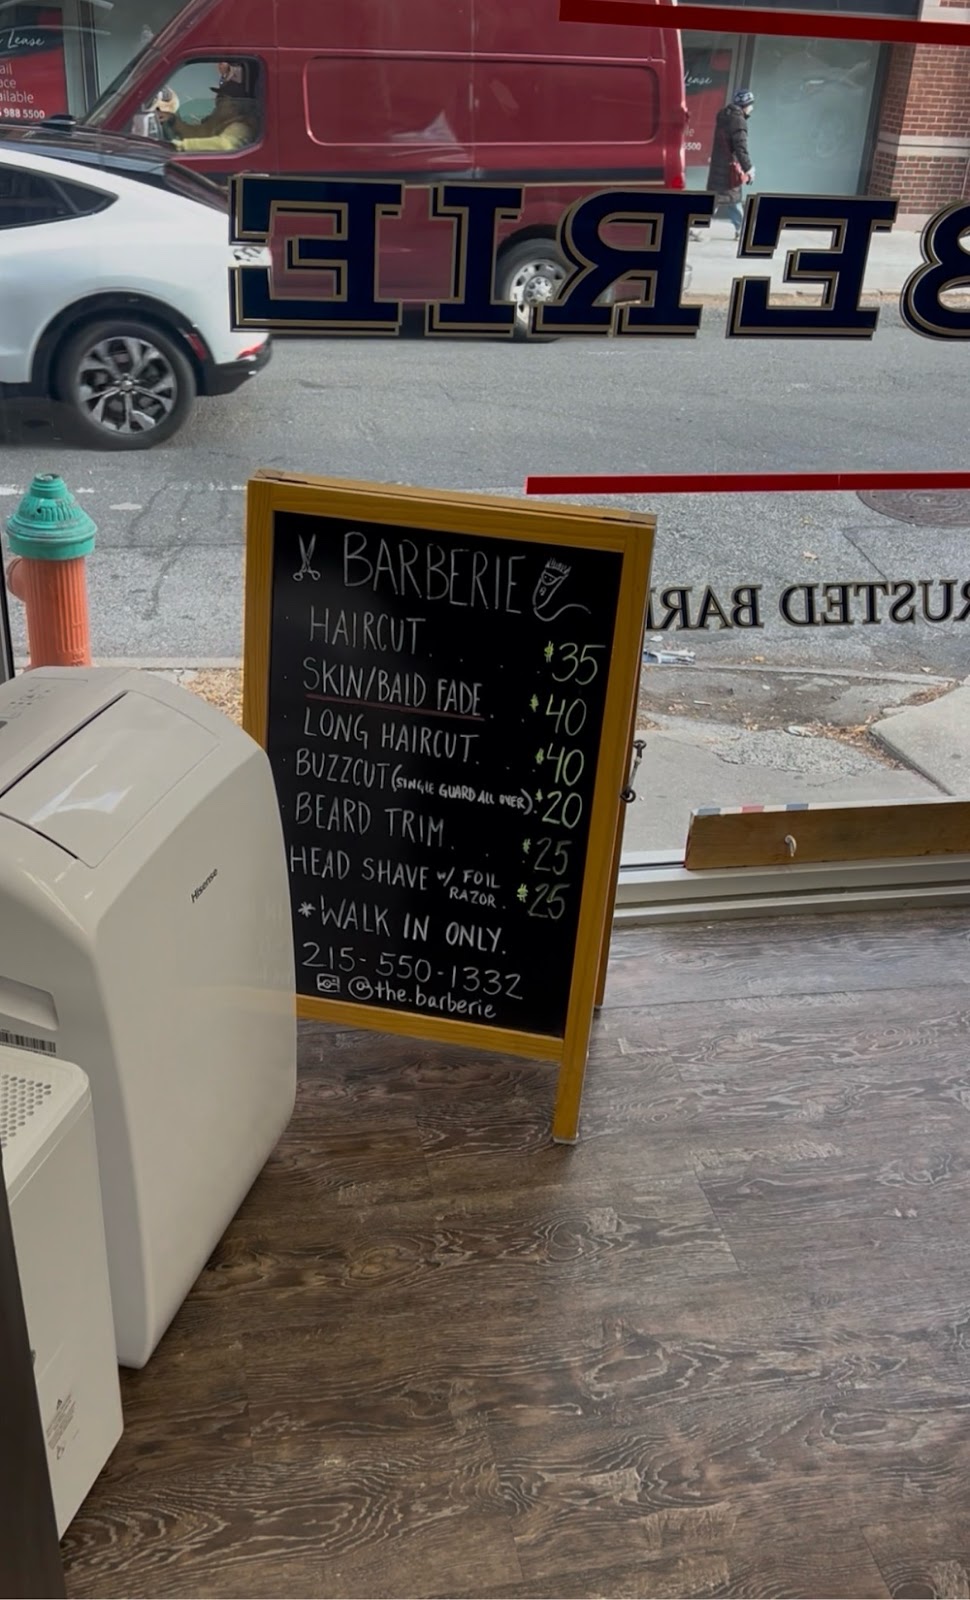 Lease
988 5500
Lease
BERIE
RUSTED BAR
BARBERIE
HAIRCUT. . . . $35
SKIN/BALD FADE . . $40
LONG HAIRCUT. . . $40
BUZZCUT (SINGLE GUARD ALL OVER). $20
BEARD TRIM. . . $25
HEAD SHAVE w/ FOIL RAZOR. $25
*WALK IN ONLY.
215-550-1332
@the.barberie
Hisense